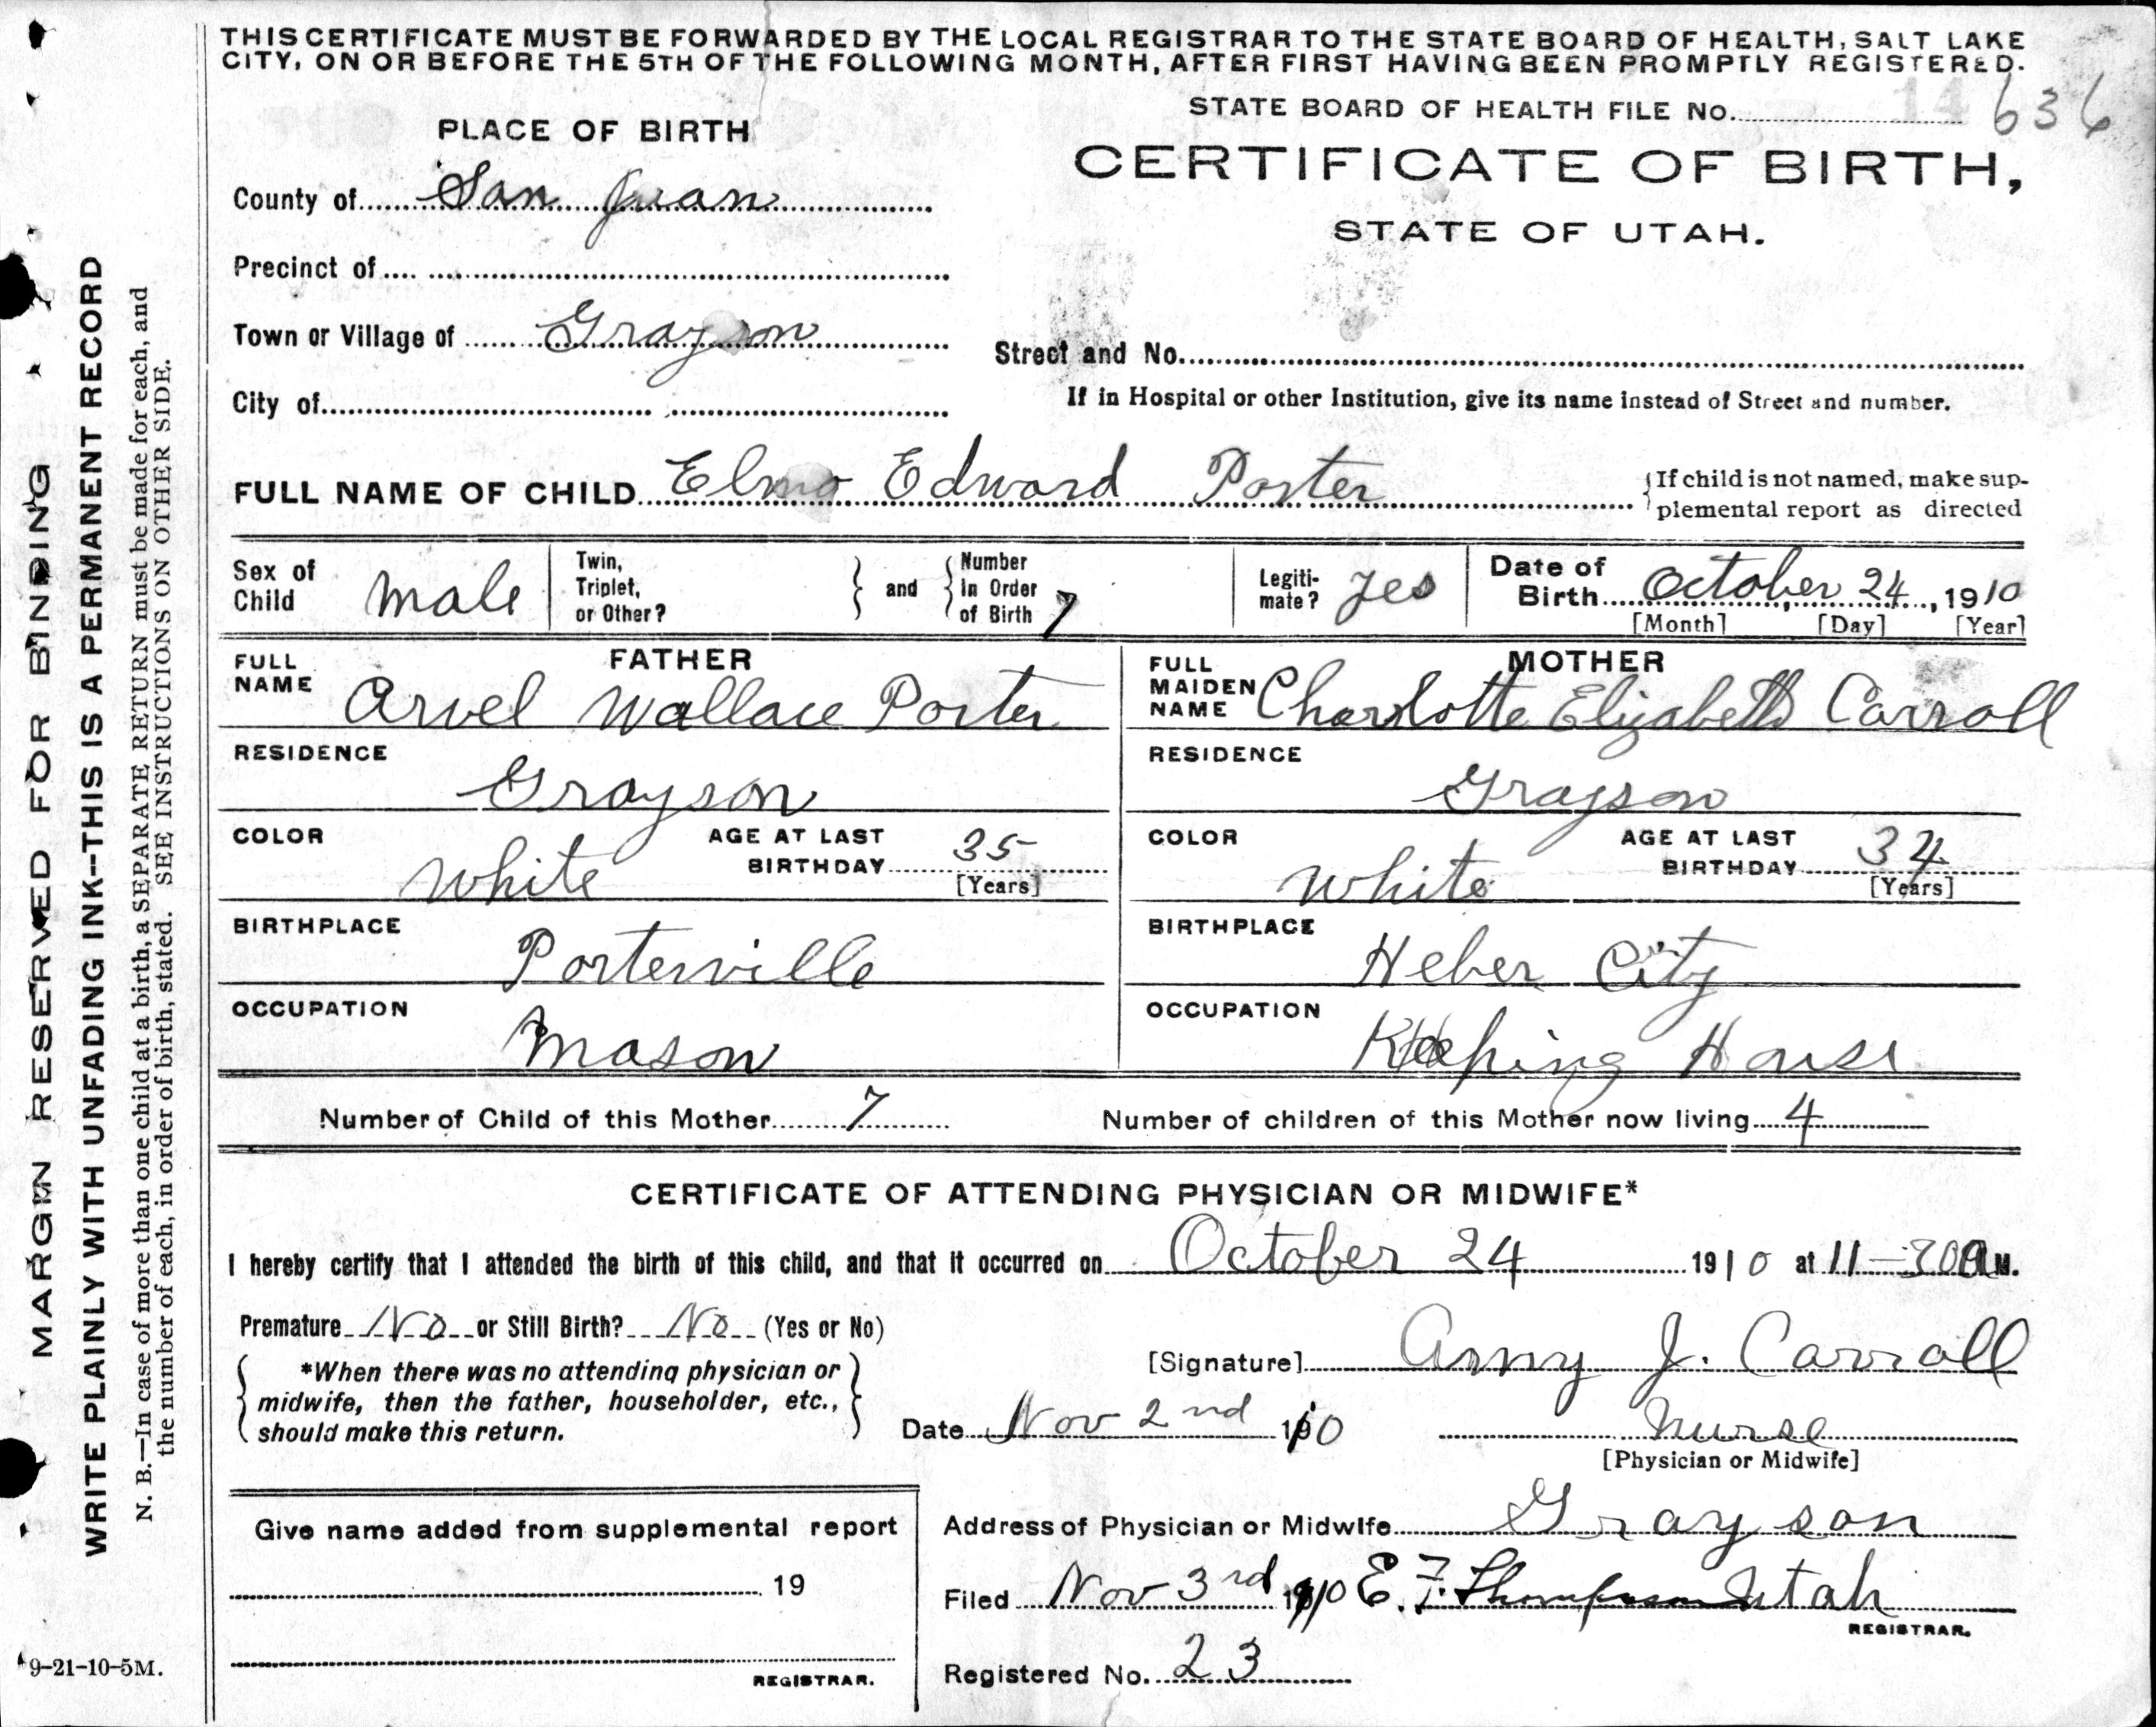 THIS CERTIFICATE MUST BE FORWARDED BY THE LOCAL REGISTRAR TO THE STATE BOARD OF HEALTH, SALT LAKE
CITY, ON OR BEFORE THE 5TH OF THE FOLLOWING MONTH, AFTER FIRST HAVING BEEN PROMPTLY REGISTERED.
STATE BOARD OF HEALTH FILE No. 14 636
PLACE OF BIRTH
CERTIFICATE OF BIRTH,
STATE OF UTAH.
County of San Juan
Precinct of
Town or Village of Grayson
Street and No.
City of
If in Hospital or other Institution, give its name instead of Street and number.
FULL NAME OF CHILD Elmo Edward Porter
If child is not named, make sup-
plemental report as directed
Sex of Child male
Twin, Triplet, or Other?
and
Number in Order of Birth 7
Legiti-mate? yes
Date of Birth October 24, 1910
[Month] [Day] [Year]
FATHER
FULL NAME Arvel Wallace Porter
MOTHER
FULL MAIDEN NAME Charlotte Elizabeth Carroll
RESIDENCE Grayson
RESIDENCE Grayson
COLOR White
AGE AT LAST BIRTHDAY 35 [Years]
COLOR White
AGE AT LAST BIRTHDAY 34 [Years]
BIRTHPLACE Porterville
BIRTHPLACE Heber City
OCCUPATION Mason
OCCUPATION Keeping House
Number of Child of this Mother 7
Number of children of this Mother now living 4
CERTIFICATE OF ATTENDING PHYSICIAN OR MIDWIFE*
I hereby certify that I attended the birth of this child, and that it occurred on October 24 1910 at 11-30 a M.
Premature No or Still Birth? No (Yes or No)
*When there was no attending physician or
midwife, then the father, householder, etc.,
should make this return.
[Signature] Amy J. Carroll
Date Nov 2nd 1910
Nurse
[Physician or Midwife]
Give name added from supplemental report
19
REGISTRAR.
Address of Physician or Midwife Grayson
Utah
Filed Nov 3rd 1910 E. F. Thompson
REGISTRAR.
Registered No. 23
MARGIN RESERVED FOR BINDING
WRITE PLAINLY WITH UNFADING INK--THIS IS A PERMANENT RECORD
N. B.—In case of more than one child at a birth, a SEPARATE RETURN must be made for each, and
the number of each, in order of birth, stated. SEE INSTRUCTIONS ON OTHER SIDE.
9-21-10-5M.